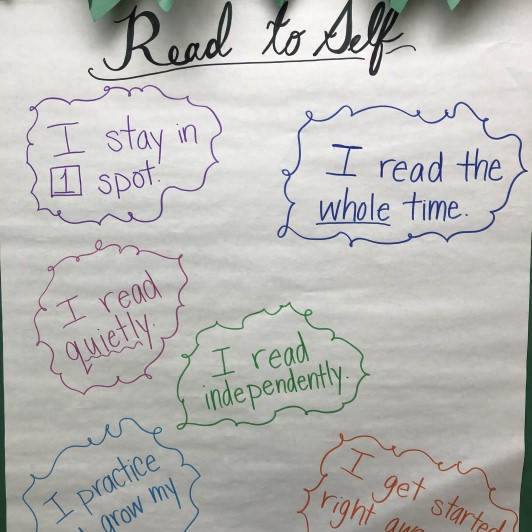 Read to Self
I stay in
1 spot.
I read the
whole time.
I read
quietly.
I read
independently.
I practice
grow my
I get started
right